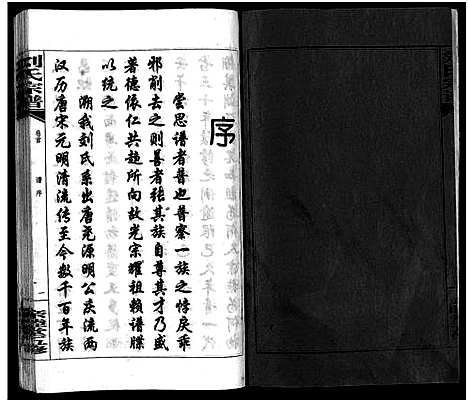 序
尝思谱者普也普察一族之悖戾乖
邪削去之则善者张其族自尊其才乃盛
著德依仁共趋所向故光宗耀祖赖谱牒
以统之
溯我刘氏系出唐尧源明公庆流两
汉历唐宋元明清流传至今数千百年族
刘氏宗谱
卷首
谱序
一